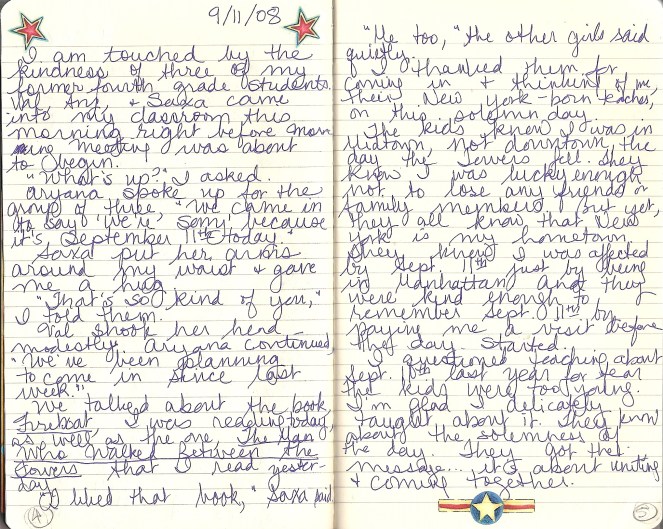 9/11/08
I am touched by the
kindness of three of my
former fourth grade students.
Val, Ary, + Saxa came
into my classroom this
morning right before morn-
ning meeting was about
to begin.
"What's up?" I asked.
Aryana spoke up for the
group of three, "We came in
to say we're sorry because
it's September 11th today."
Saxa put her arms
around my waist + gave
me a hug.
"That's so kind of you,"
I told them.
Val shook her head
modestly. Aryana continued,
"We've been planning
to come in since last
week."
We talked about the book,
Fireboat, I was reading today,
as well as the one, The Man
Who Walked Between the
Towers that I read yester-
day.
"I liked that book," Saxa said.
4
"Me too," the other girls said
quietly.
I thanked them for
coming in + thinking of me,
their New York-born teacher,
on this solemn day.
The kids knew I was in
Midtown, not downtown, the
day the Towers fell. They
know I was lucky enough
not to lose any friends or
family members. But yet,
they all know that New
York is my hometown.
They knew I was affected
by Sept. 11th just by being
in Manhattan and they
were kind enough to
remember Sept. 11th by
paying me a visit before
the day started.
I questioned teaching about
Sept. 11th last year for fear
the kids were too young.
I'm glad I delicately
taught about it. They know
about the solemness of
the day. They got the
message... it's about uniting
+ coming together.
5